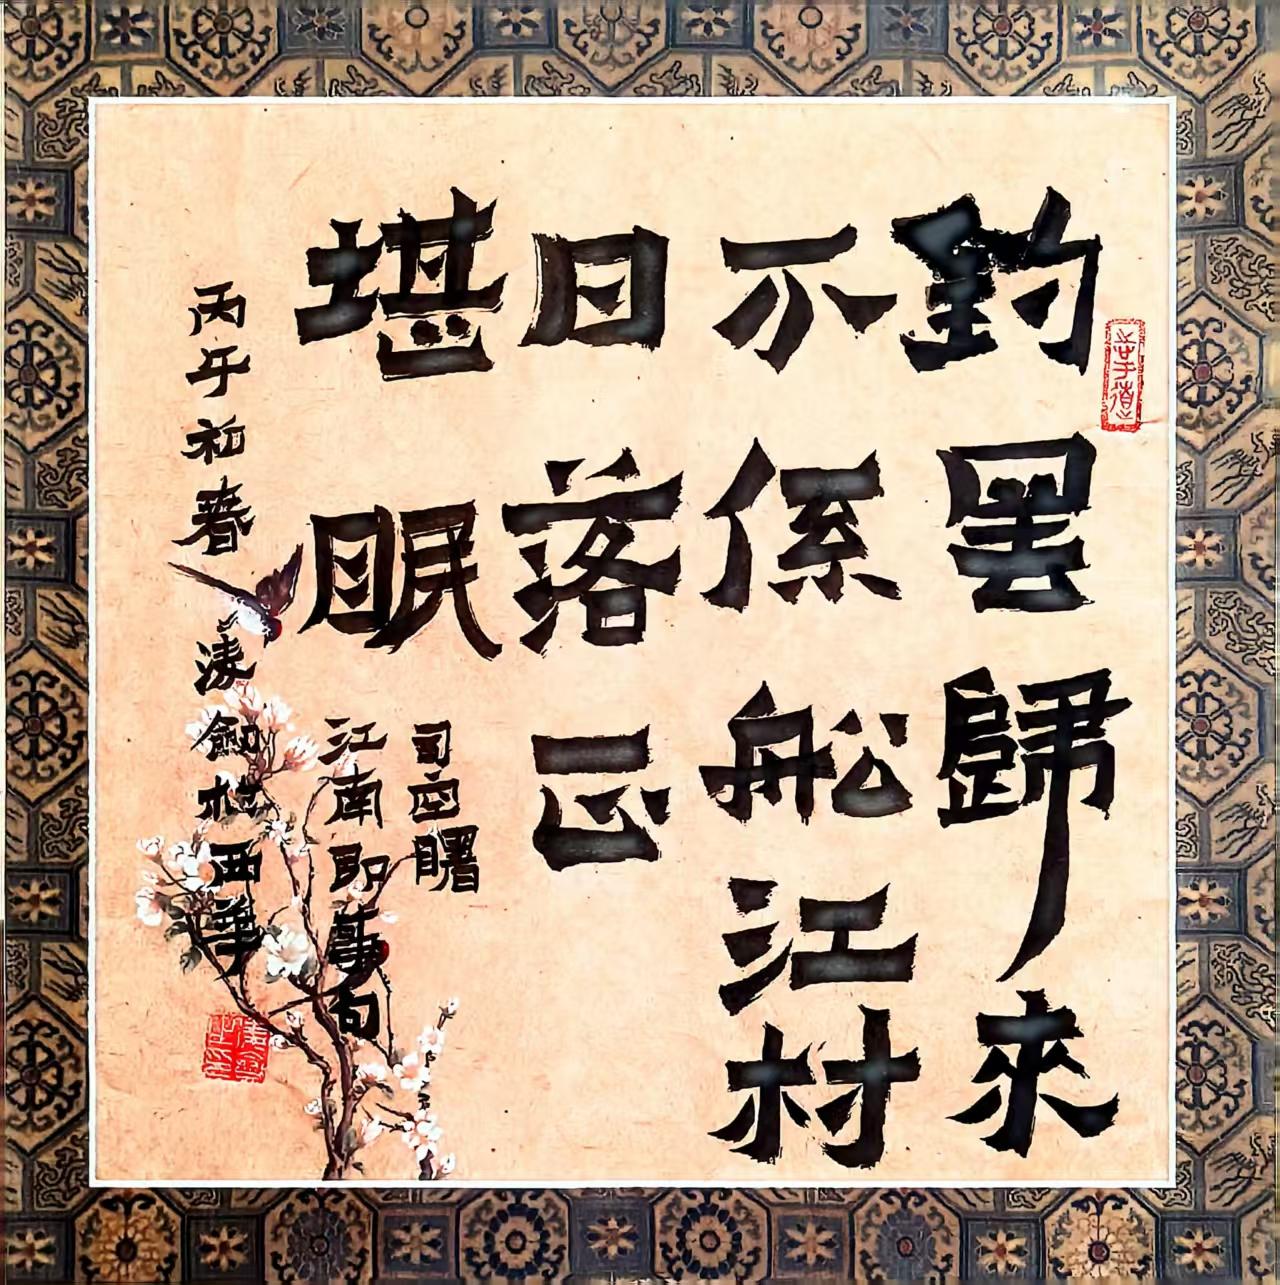 釣罷歸來
不係船江村
日落正
堪眠
司空曙
江南即事句
丙午初春
劍於西華